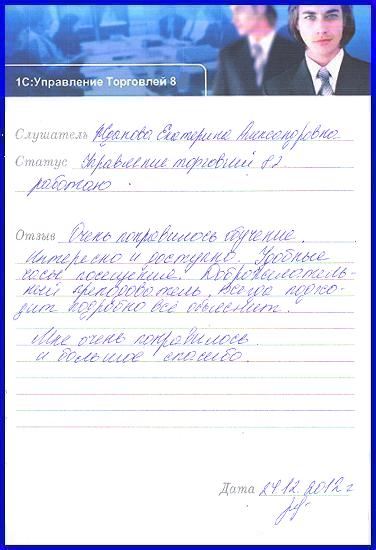 1С:Управление Торговлей 8
Слушатель Жданова Екатерина Александровна
Статус Управление торговлей 8.2
работаю
Отзыв Очень понравилось обучение.
Интересно и доступно. Удобные
часы посещения. Доброжелатель-
ный преподователь, всегда подхо-
дит подробно всё объяснит.
Мне очень понравилось
и большое спасибо.
Дата 24.12.2012 г